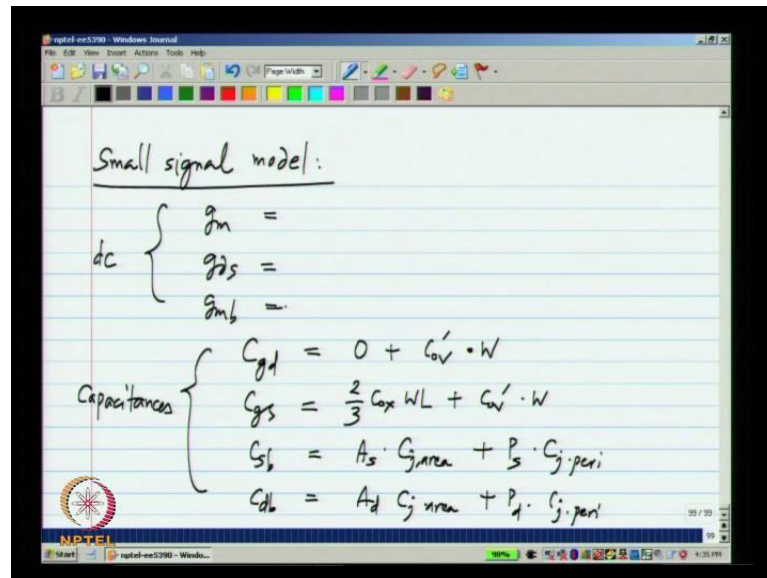 nptel-ee5390 - Windows Journal
File Edit View Insert Actions Tools Help
Page Width
B I
Small signal model:
dc
gm =
gds =
gmb =
Capacitances
Cgd = 0 + Cov' · W
Cgs = 2/3 Cox WL + Cov' · W
Csb = As · Cj,area + Ps · Cj·peri
Cdb = Ad Cj area + Pd · Cj·peri
99/99
99
NPTEL
Start nptel-ee5390 - Windo... 98% 4:35 PM